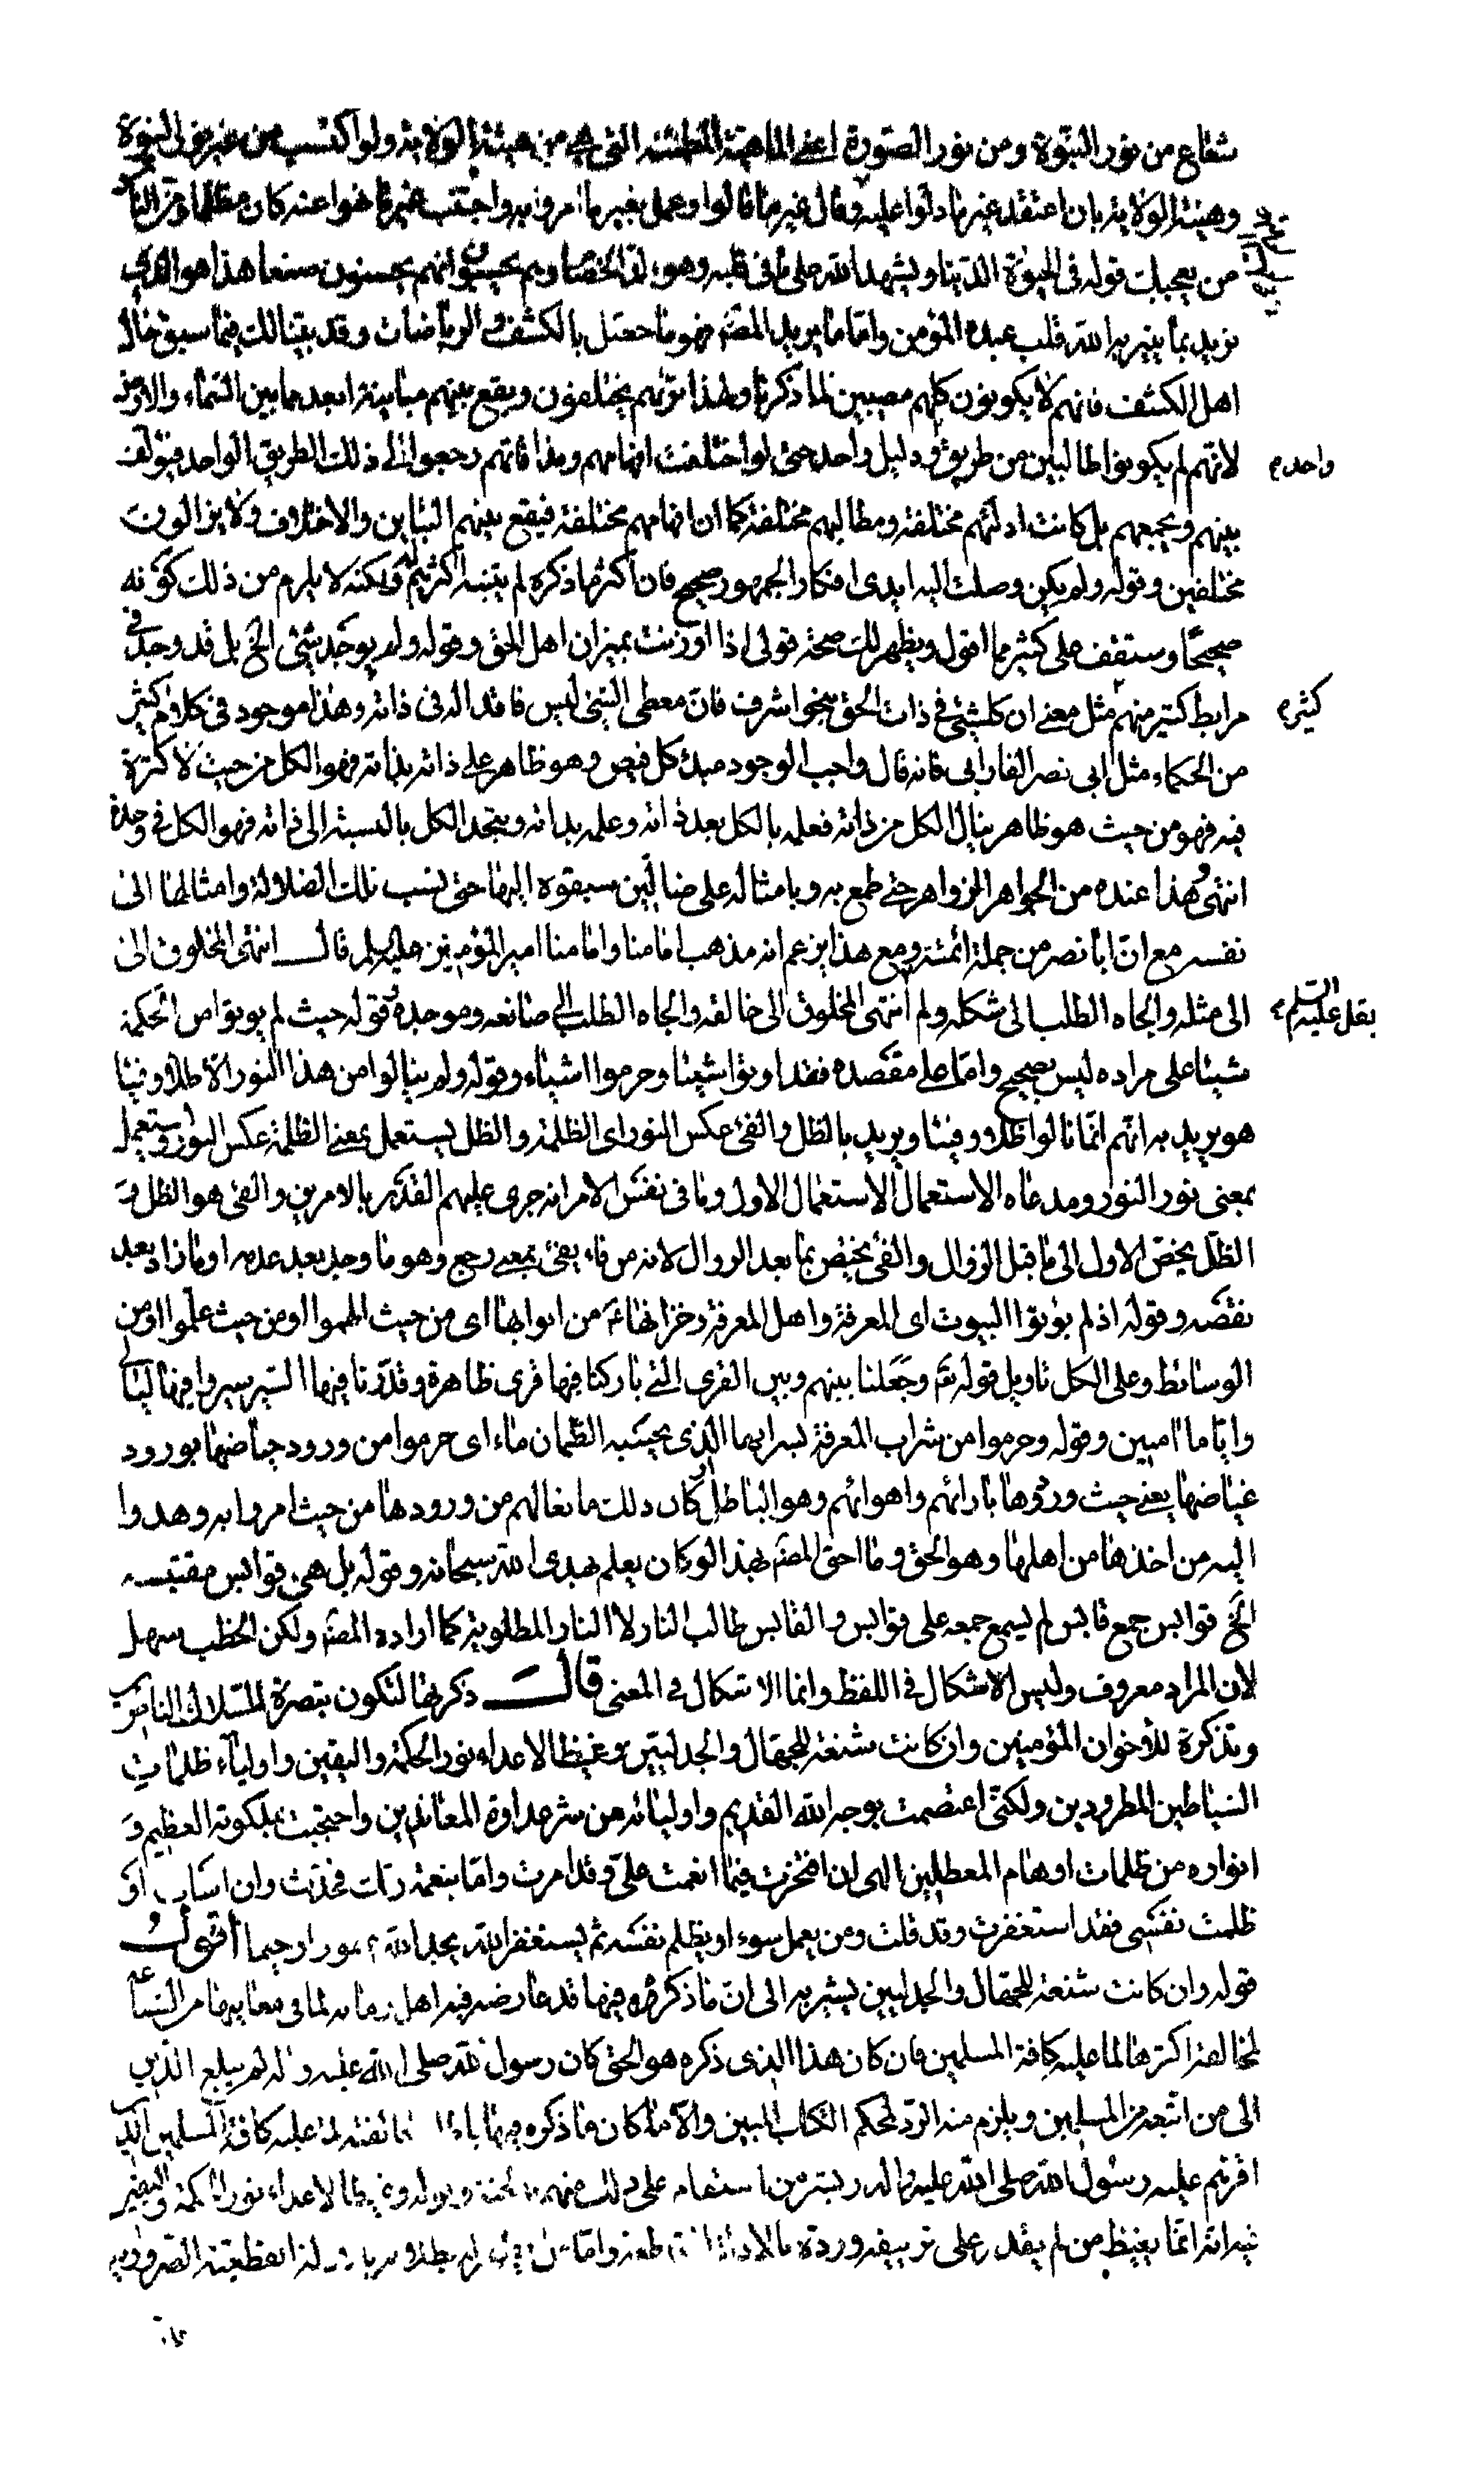 شعاع من نور النبوة ومن نور الصورة اعنى الماهية المطمئنة التى هى من هيئة الولاية ولو اكتسب من غير نور النبوة
وهيئة الولاية بان اعتقد غير ما دلوا عليه وقال غير ما قالوا وعمل بغير ما امروا به واجتنب غير ما نهوا عنه كان مظلما ومن الناس
من يعجبك قوله فى الحيوة الدنيا ويشهد الله على ما فى قلبه وهو الد الخصام وهم يحسبون انهم يحسنون صنعا هذا هو الذى
نريد بما ينير به الله قلب عبده المؤمن واما ما يريد المصنف فهو ما حصل بالكشف والرياضات وقد بينا لك فيما سبق حال
اهل الكشف فانهم لا يكونون كلهم مصيبين لما ذكرنا ولهذا تريهم يختلفون ويقع بينهم مباينة ابعد مما بين السماء والارض
لانهم لم يكونوا طالبين من طريق ودليل واحد حتى لو اختلفت افهامهم ومذاقاتهم رجعوا الى ذلك الطريق الواحد فيؤلف
واحد
بينهم ويجمعهم بل كانت ادلتهم مختلفة ومطالبهم مختلفة كما ان افهامهم مختلفة فيقع بينهم التباين والاختلاف ولا يزالون
مختلفين وقوله ولم يكن وصلت اليه ايدى افكار الجمهور صحيح فان اكثر ما ذكره لم يتنبه اكثرهم له ولكنه لا يلزم من ذلك كونه
صحيحا وستقف على كثير مما اقول ويظهر لك صحة قولى اذا اوزنت بميزان اهل الحق وقوله ولم يوجد شئ الخ بل قد وجد فى
مرابط كثير منهم مثل معنى ان كلشئ فى ذات الحق بنحو اشرف فان معطى الشئ ليس فاقدا له فى ذاته وهذا موجود فى كلام كثير
كثيره
من الحكماء مثل ابى نصر الفارابى فانه قال واجب الوجود مبدء كل فيض وهو ظاهر على ذاته بذاته فهو الكل من حيث لا كثرة
فيه فهو من حيث هو ظاهر ينال الكل من ذاته فعلمه بالكل بعد ذاته وعلمه بذاته ويتحد الكل بالنسبة الى ذاته فهو الكل فى وحدة
انتهى وهذا عنده من الجواهر الزواهر حتى طمع به وبامثاله على ضالين سبقوه اليها حتى نسب تلك الضلالة وامثالها الى
نفسه مع ان ابا نصر من جملة ائمته ومع هذا يزعم انه مذهب امامنا وامامنا امير المؤمنين عليه السلم قال انتهى المخلوق الى
الى مثله والجاه الطلب الى شكله ولم انتهى المخلوق الى خالقه والجاه الطلب الى صانعه وموجده وقوله حيث لم يؤتوا من الحكمة
يقل عليه السلم
شيئا على مراده ليس بصحيح واما على مقصده فقد اوتوا شيئا وحرموا اشياء وقوله ولم ينالوا من هذا النور الا ظلا وفيئا
هو يريد به انهم انما نالوا ظلا وفيئا ويريد بالظل والفئ عكس النور اى الظلمة والظل يستعمل بمعنى الظلمة عكس النور ويستعمل
بمعنى نور النور ومدعاه الاستعمال الاستعمال الاول وما فى نفس الامر انه جرى عليهم القدر بالامرين والفئ هو الظل و
الظل يخص الاول الى ما قبل الزوال والفئ يختص بما بعد الزوال لانه من فاء يفئ بمعنى رجع وهو ما وجد بعد عدمه او ما زاد بعد
نقصه وقوله اذ لم يؤتوا البيوت اى المعرفة واهل المعرفة وخزانها من ابوابها اى من حيث الهموا او من حيث علموا او من
الوسائط وعلى الكل تاويل قوله تع وجعلنا بينهم وبين القرى التى باركنا فيها قرى ظاهرة وقدرنا فيها السير سيروا فيها ليالى
واياما امنين وقوله وحرموا من شراب المعرفة بسرابها الذى يحسبه الظمان ماء اى حرموا من ورود حياضها بورود
غياضها يعنى حيث وردوها بارائهم واهوائهم وهو الباطل كان ذلك مانعا لهم من ورودها من حيث امروا به وهدوا
اليه من اخذها من اهلها وهو الحق وما احق المصنف بهذا لو كان يعلم بهدى الله سبحانه وقوله بل هى قوابس مقتبسه
الخ قوابس جمع قابس لم يسمع جمعه على قوابس والقابس طالب النار لا النار المطلوبة كما اراده المصنف ولكن الخطب سهل
لان المراد معروف وليس الاشكال فى اللفظ وانما الاشكال فى المعنى قال ذكرتها لتكون تبصرة للسلاك الناظرين
وتذكرة للاخوان المؤمنين وان كانت شنعة للجهال والجدليين وغيظا لاعداء نور الحكمة واليقين واولياء ظلمات
الشياطين المطرودين ولكنى اعتصمت بوجه الله القديم واوليائه من شر عداوة المعاندين واحتجبت بملكوته العظيم و
انواره من ظلمات اوهام المعطلين الهى ان افتخرت فيما انعمت على وقد امرت واما بنعمة ربك فحدث وان اسات او
ظلمت نفسى فقد استغفرت وقد قلت ومن يعمل سوء او يظلم نفسه ثم يستغفر الله يجد الله غفورا رحيما اقول
قوله وان كانت شنعة للجهال والجدليين يشير به الى ان ما ذكره فيها قد عارضه فيه اهل زمانه لما فى معانيها من الشناعة
لمخالفة اكثرها لما عليه كافة المسلمين فان كان هذا الذى ذكره هو الحق كان رسول الله صلى الله عليه واله لم يبلغ الدين
الى من اتبعه من المسلمين ويلزم منه الرد لحكم الكتاب المبين والا لما كان ما ذكره فيها لما عليه كافة المسلمين الذين
اقرهم عليه رسول الله صلى الله عليه واله على ذلك وقوله وغيظا لاعداء نور الحكمة واليقين
فيه انه انما يغيظ من لم يقدر على تزييفه ورده بالادلة